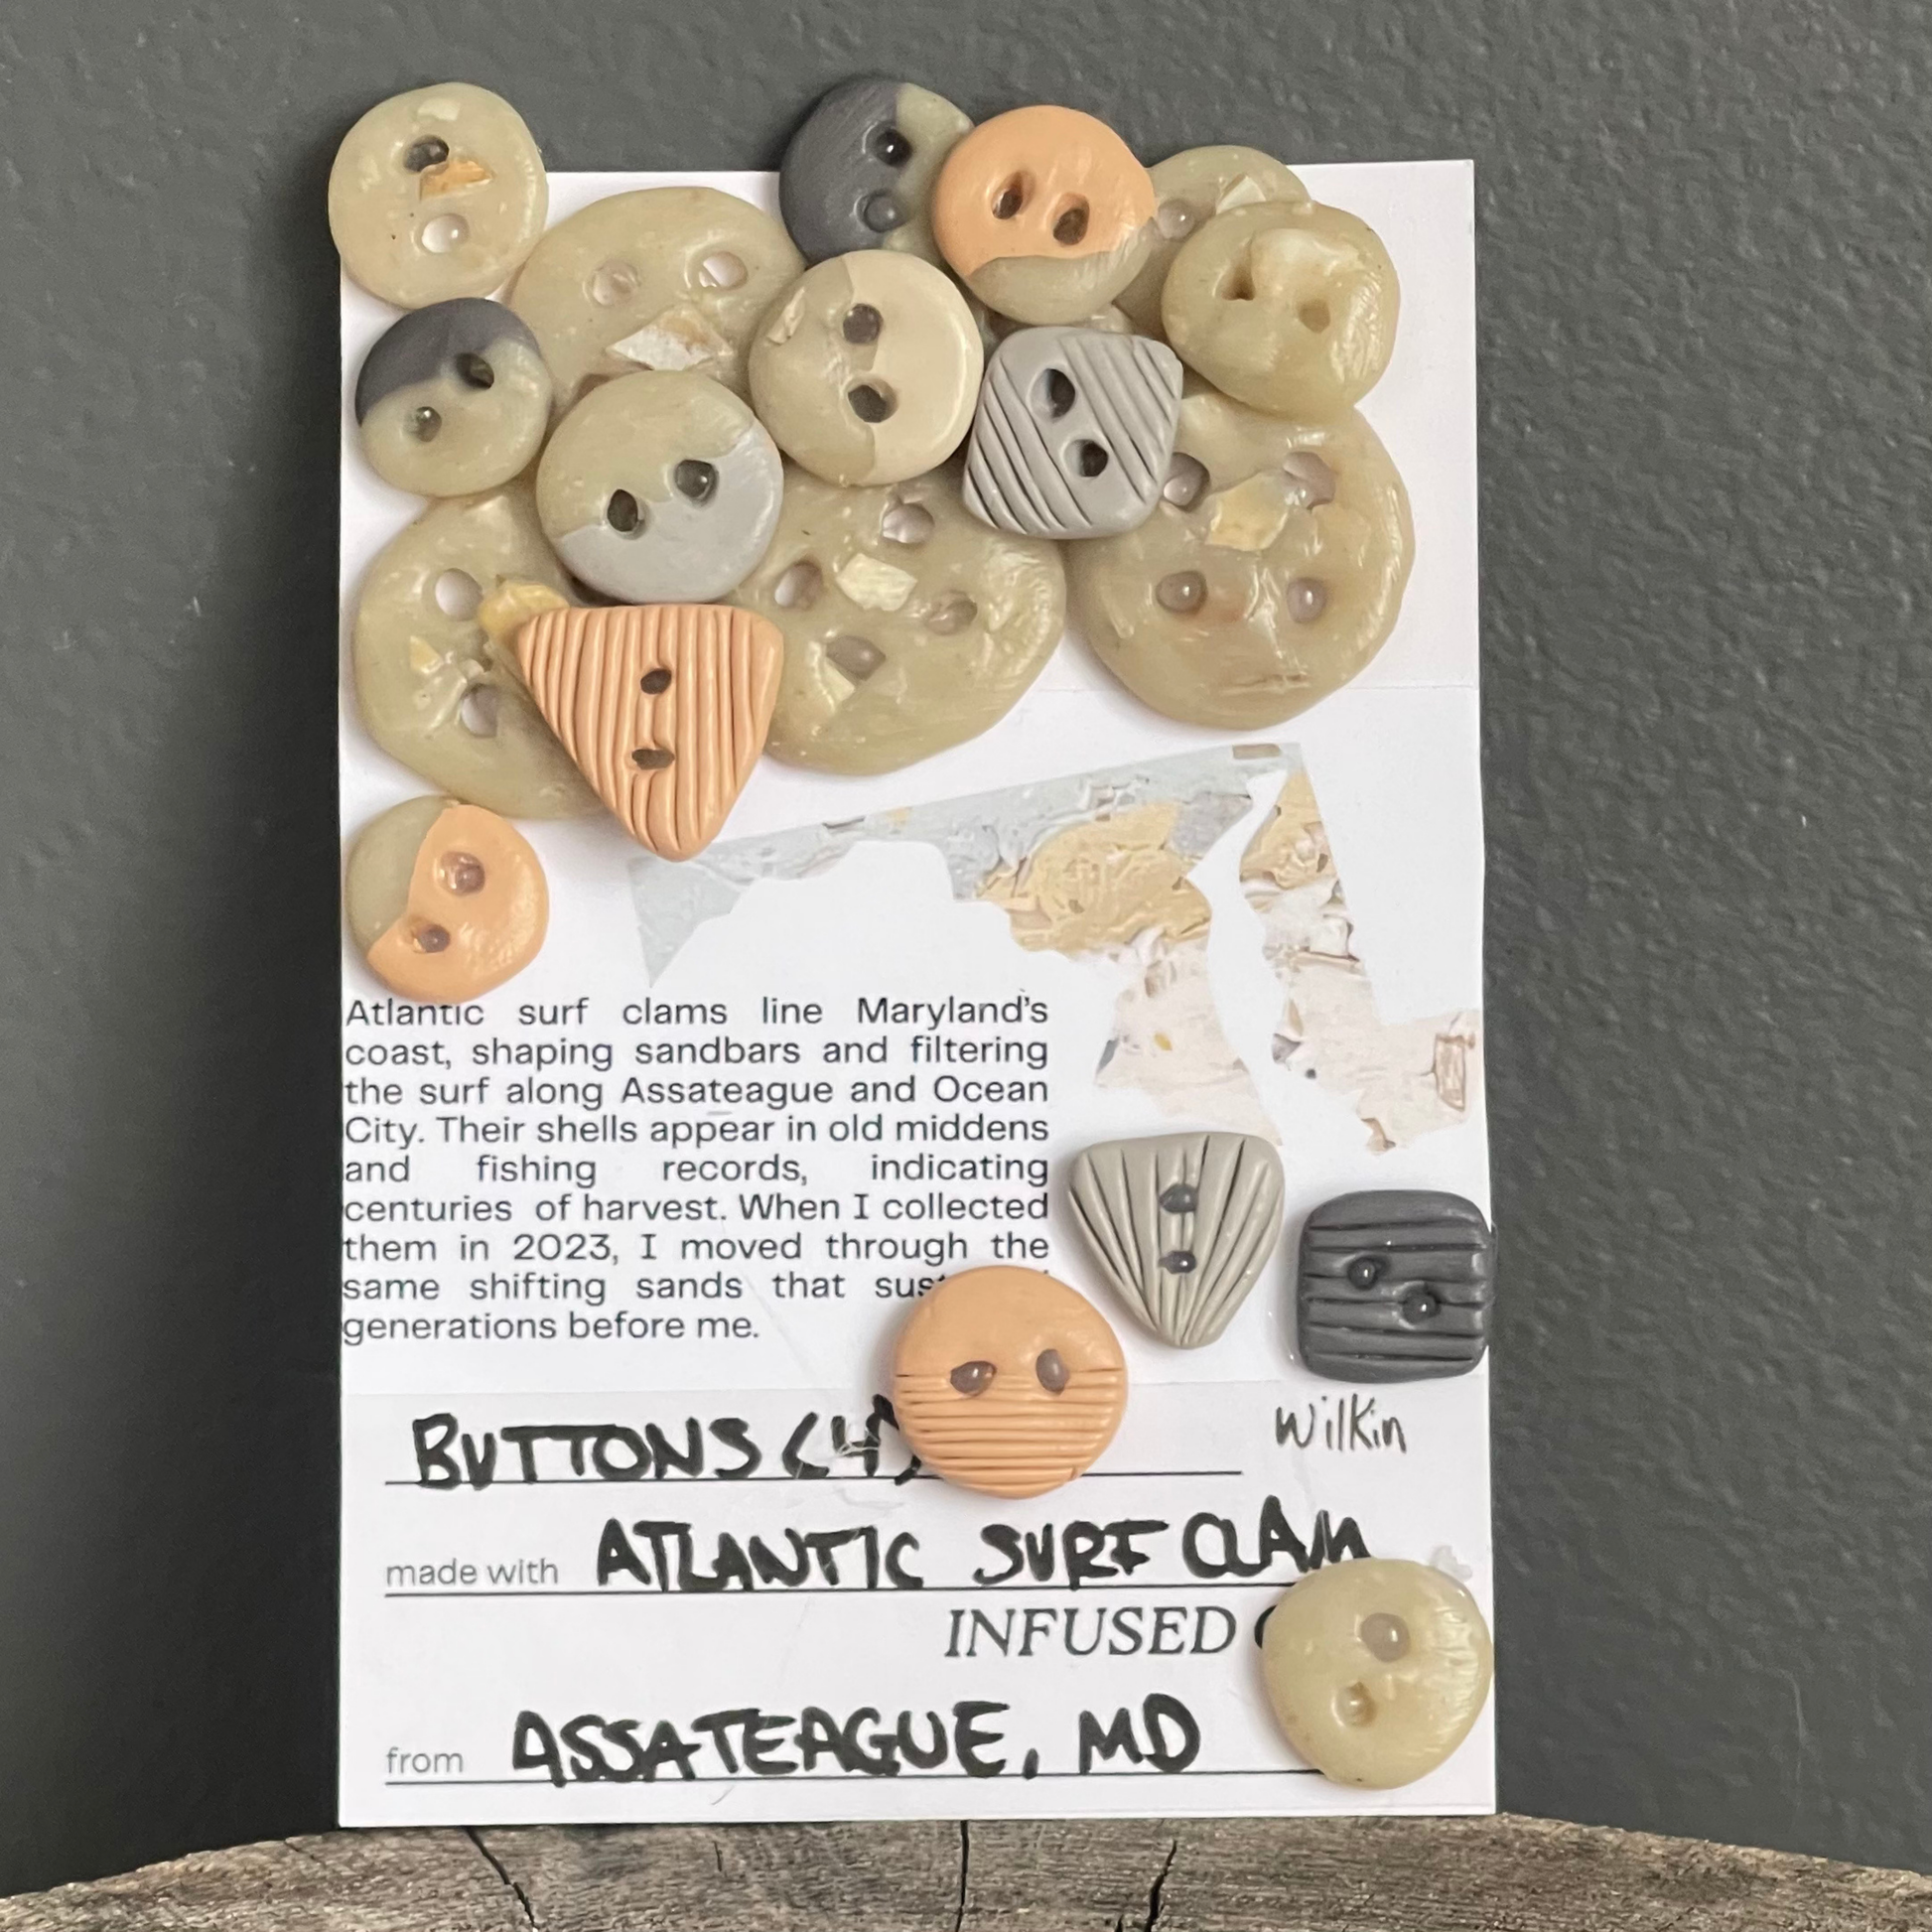 Atlantic surf clams line Maryland's
coast, shaping sandbars and filtering
the surf along Assateague and Ocean
City. Their shells appear in old middens
and fishing records, indicating
centuries of harvest. When I collected
them in 2023, I moved through the
same shifting sands that
generations before me.
BUTTONS (4)
Wilkin
made with ATLANTIC SURF CLAM
INFUSED
from ASSATEAGUE, MD